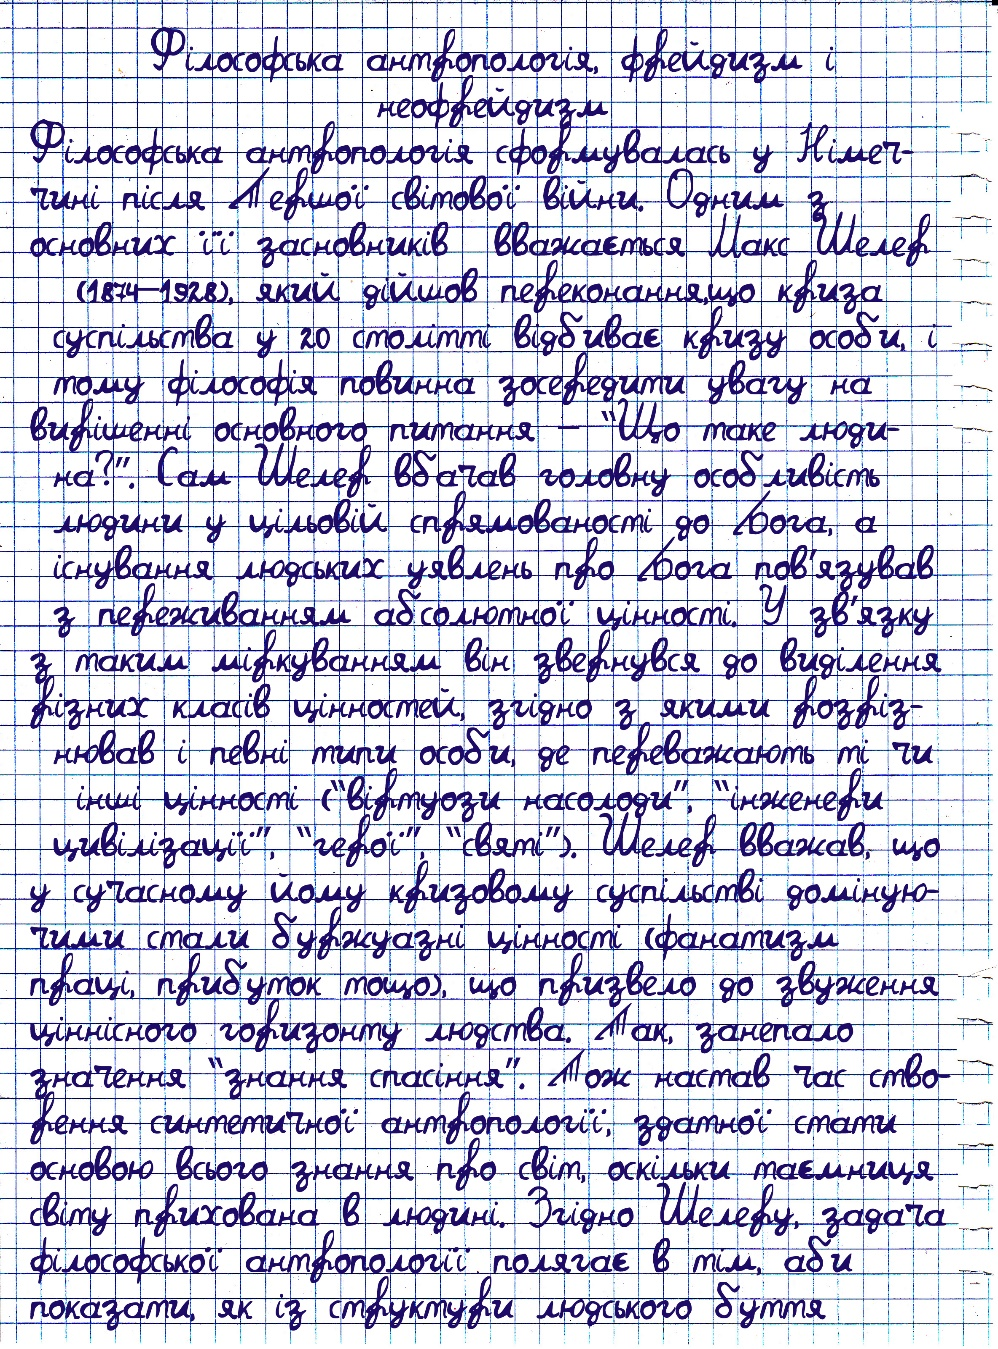 Філософська антропологія, фрейдизм і
неофрейдизм
Філософська антропологія сформувалась у Німеч-
чині після Першої світової війни. Одним з
основних її засновників вважається Макс Шелер
(1874—1928), який дійшов переконання,що криза
суспільства у 20 столітті відбиває кризу особи, і
тому філософія повинна зосередити увагу на
вирішенні основного питання – "Що таке люди-
на?". Сам Шелер вбачав головну особливість
людини у цільовій спрямованості до Бога, а
існування людських уявлень про Бога пов'язував
з переживанням абсолютної цінності. У зв'язку
з таким міркуванням він звернувся до виділення
різних класів цінностей, згідно з якими розріз-
нював і певні типи особи, де переважають ті чи
інші цінності ("віртуози насолоди", "інженери
цивілізації", "герої", "святі"). Шелер вважав, що
у сучасному йому кризовому суспільстві доміную-
чими стали буржуазні цінності (фанатизм
праці, прибуток тощо), що призвело до звуження
ціннісного горизонту людства. Так, занепало
значення "знання спасіння". Тож настав час ство-
рення синтетичної антропології, здатної стати
основою всього знання про світ, оскільки таємниця
світу прихована в людині. Згідно Шелеру, задача
філософської антропології полягає в тім, аби
показати, як із структури людського буття